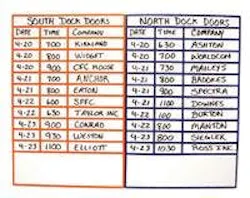 SOUTH DOCK DOORS
DATE TIME COMPANY
4-20 700 KIRKLAND
4-20 800 WIDGET
4-20 900 CFC HOUSE
4-21 700 ANCHOR
4-21 800 EATON
4-22 600 SPFC
4-22 630 TAYLOR INC
4-23 900 CONRAD
4-23 930 WESTON
4-23 1100 ELLIOTT
NORTH DOCK DOORS
DATE TIME COMPANY
4-20 630 ASHTON
4-20 700 WORLDCOM
4-21 730 MAILEY'S
4-21 800 BROOKES
4-21 900 SPECTRA
4-21 1100 DOWNES
4-22 100 BURTON
4-22 800 MANTON
4-23 800 SIEGLER
4-23 1030 ROSS INC